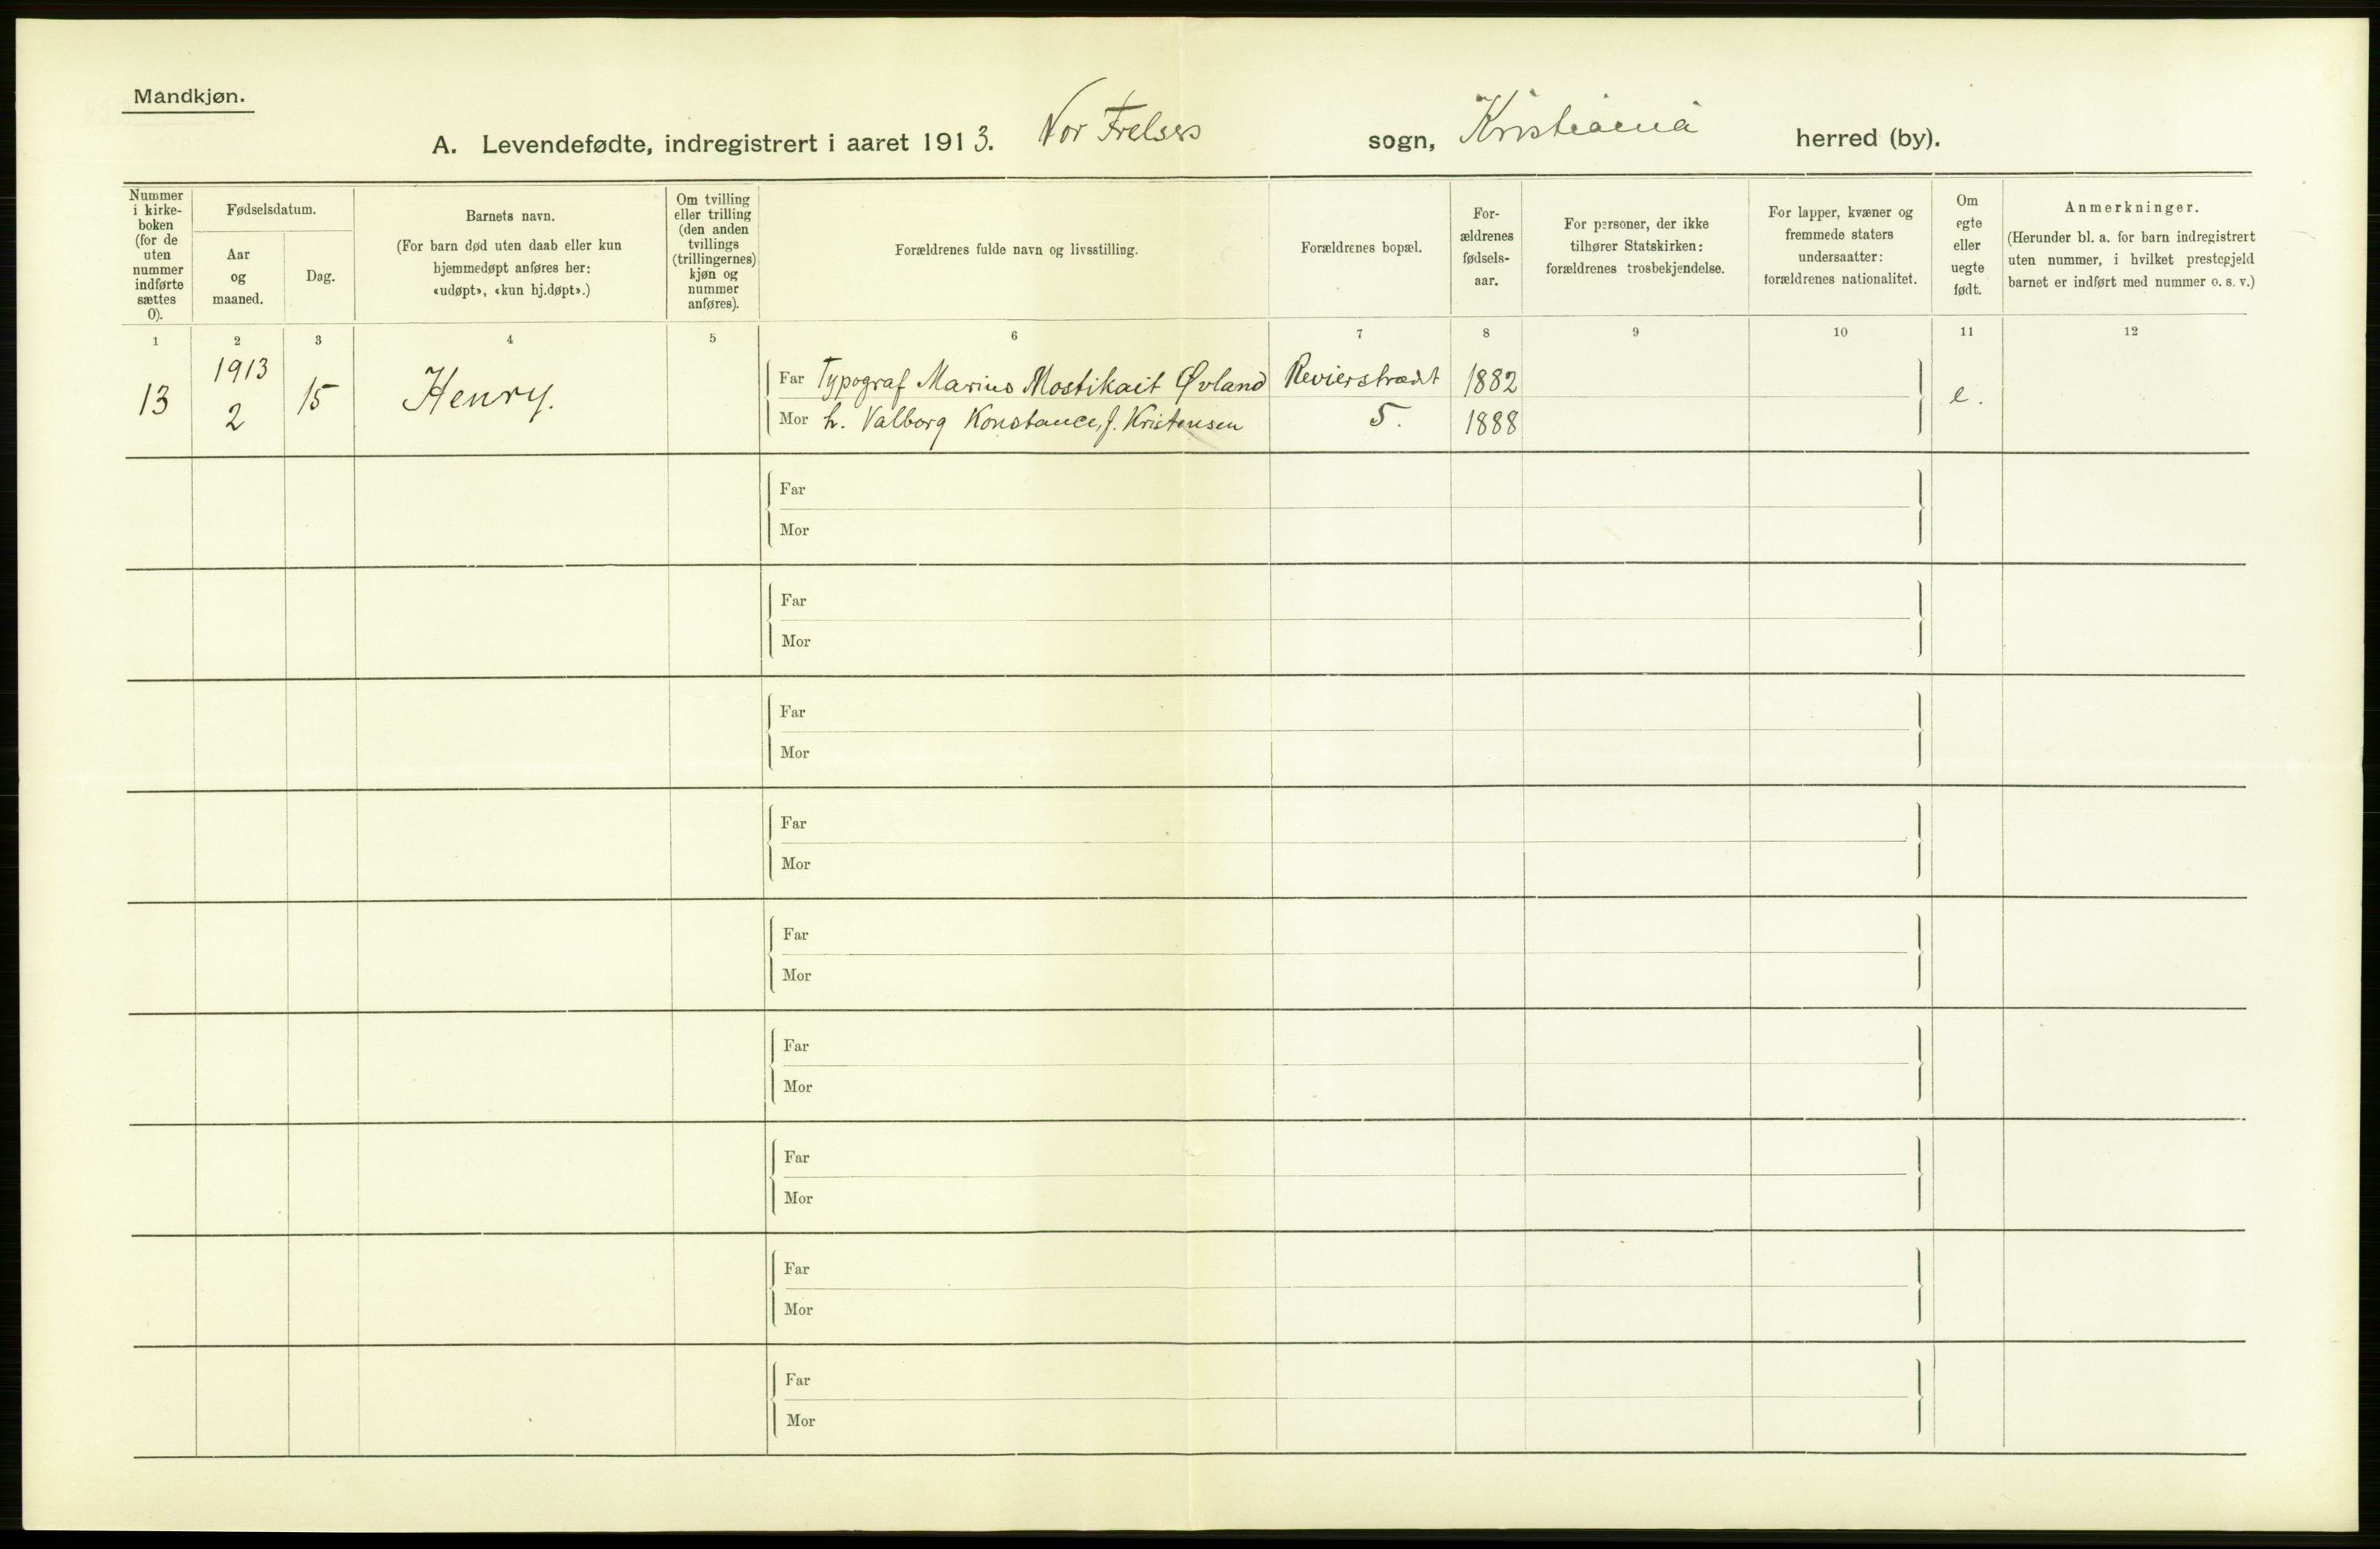 Mandkjøn.
A. Levendefødte, indregistrert i aaret 1913. Vor Frelsers sogn, Kristiania herred (by).
Nummer i kirke-boken (for de uten nummer indførte sættes 0).
Fødselsdatum.
Aar og maaned.
Dag.
Barnets navn.
(For barn død uten daab eller kun hjemmedøpt anføres her: «udøpt», «kun hj.døpt».)
Om tvilling eller trilling (den anden tvillings (trillingernes) kjøn og nummer anføres).
Forældrenes fulde navn og livsstilling.
Forældrenes bopæl.
For-ældrenes fødsels-aar.
For personer, der ikke tilhører Statskirken: forældrenes trosbekjendelse.
For lapper, kvæner og fremmede staters undersaatter: forældrenes nationalitet.
Om egte eller uegte født.
Anmerkninger.
(Herunder bl. a. for barn indregistrert uten nummer, i hvilket prestegjeld barnet er indført med nummer o. s. v.)
1 2 3 4 5 6 7 8 9 10 11 12
13 1913 2 15 Henry.
Far Typograf Marius Øvland Revierstrædt 1882
Mor h. Valborg Konstance, f. Kristensen 5. 1888
e.
Far
Mor
Far
Mor
Far
Mor
Far
Mor
Far
Mor
Far
Mor
Far
Mor
Far
Mor
Far
Mor